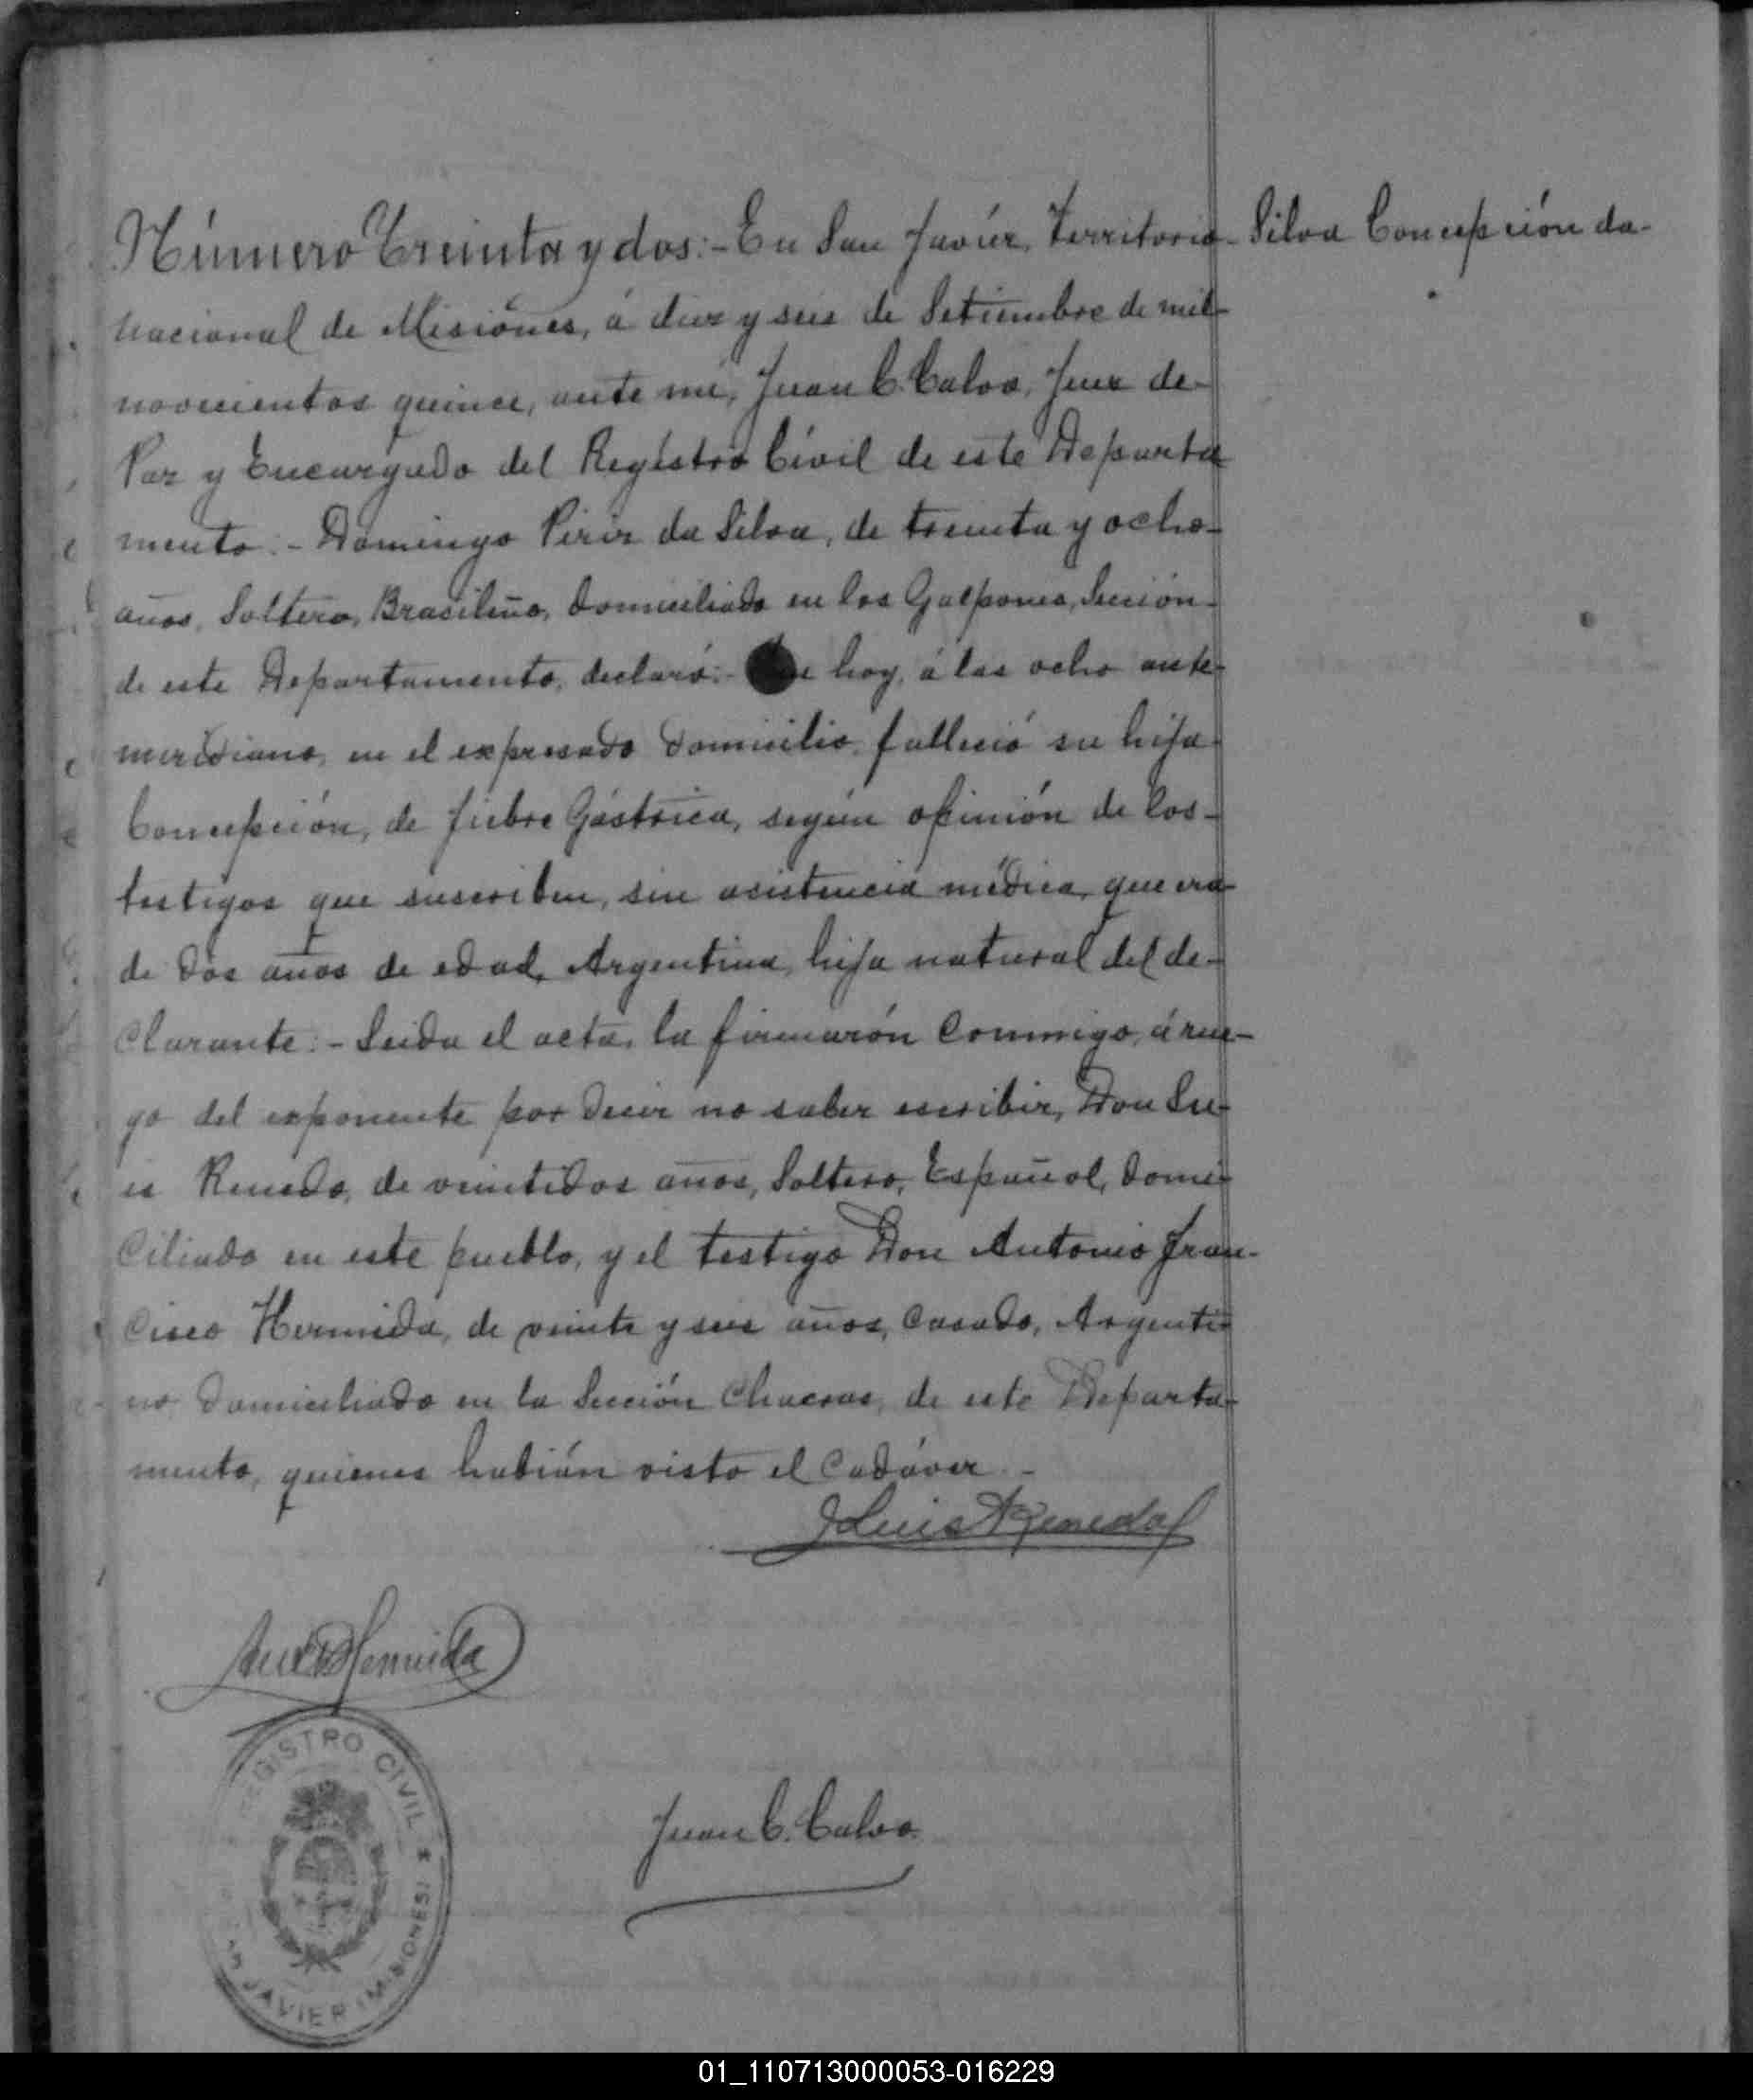 Número Treinta y dos:- En San Javier, Territorio
Silva Concepción da-
Nacional de Misiónes, á diez y seis de Setiembre de mil-
novecientos quince, ante mi, Juan C. Calvo, Juez de-
Paz y Encargado del Registro Civil de este Departa
mento.- Domingo Pirir da Silva, de treinta y ocho-
años, Soltero, Brasileño, domiciliado en los Galpones, Sección-
de este Departamento, declaró:- hoy, á las ocho ante-
meridiano, en el expresado domicilio, falleció su hija
Concepción, de fiebre Gástrica, según opinión de los-
testigos que suscriben, sin asistencia médica, que era-
de dos años de edad, Argentina, hija natural del de-
clarante.- Leida el acta, la firmarón conmigo, á rue-
go del exponente por decir no saber escribir, Don Lu-
is Renedo, de veintidos años, Soltero, Español, domi-
ciliado en este pueblo, y el testigo Don Antonio Fran-
cisco Hermida, de veinte y seis años, casado, Argenti-
no, domiciliado en la Sección Chacras, de este Departa-
mento, quienes habián visto el cadáver.-
Luis Renedo
Hermida
REGISTRO CIVIL
JAVIER (MISIONES)
Juan C. Calvo
01_110713000053-016229